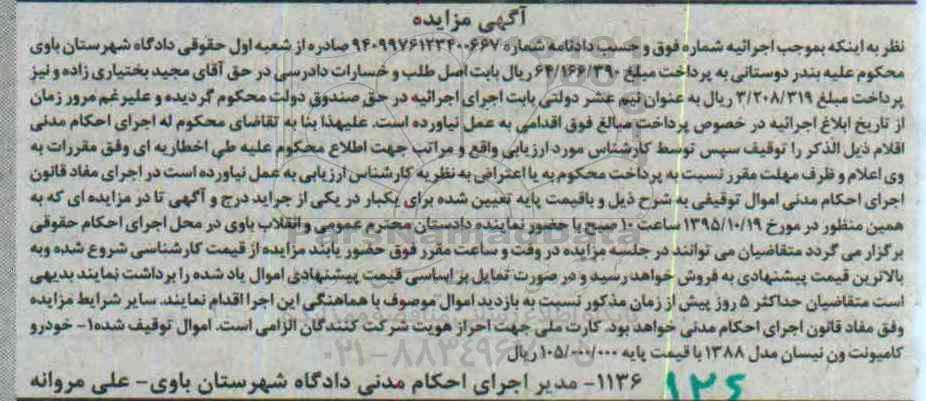 آگهی مزایده
نظر به اینکه بموجب اجرائیه شماره فوق و حسب دادنامه شماره ۹۴۰۹۹۷۶۱۲۳۴۰۰۶۶۷ صادره از شعبه اول حقوقی دادگاه شهرستان باوی
محکوم علیه بندر دوستانی به پرداخت مبلغ ۶۴/۱۶۶/۳۹۰ ریال بابت اصل طلب و خسارات دادرسی در حق آقای مجید بختیاری زاده و نیز
پرداخت مبلغ ۳/۲۰۸/۳۱۹ ریال به عنوان نیم عشر دولتی بابت اجرای اجرائیه در حق صندوق دولت محکوم گردیده و علیرغم مرور زمان
از تاریخ ابلاغ اجرائیه در خصوص پرداخت مبالغ فوق اقدامی به عمل نیاورده است. علیهذا بنا به تقاضای محکوم له اجرای احکام مدنی
اقلام ذیل الذکر را توقیف سپس توسط کارشناس مورد ارزیابی واقع و مراتب جهت اطلاع محکوم علیه طی اخطاریه ای وفق مقررات به
وی اعلام و ظرف مهلت مقرر نسبت به پرداخت محکوم به یا اعتراض به نظریه کارشناس ارزیابی به عمل نیاورده است در اجرای مفاد قانون
اجرای احکام مدنی اموال توقیفی به شرح ذیل و باقیمت پایه تعیین شده برای یکبار در یکی از جراید درج و آگهی تا در مزایده ای که به
همین منظور در مورخ ۱۳۹۵/۱۰/۱۹ ساعت ۱۰ صبح با حضور نماینده دادستان محترم عمومی و انقلاب باوی در محل اجرای احکام حقوقی
برگزار می گردد متقاضیان می توانند در جلسه مزایده در وقت و ساعت مقرر فوق حضور یابند مزایده از قیمت کارشناسی شروع شده وبه
بالاترین قیمت پیشنهادی به فروش خواهد رسید و در صورت تمایل بر اساسی قیمت پیشنهادی اموال یاد شده را برداشت نمایند بدیهی
است متقاضیان حداکثر ۵ روز پیش از زمان مذکور نسبت به بازدید اموال موصوف با هماهنگی این اجرا اقدام نمایند. سایر شرایط مزایده
وفق مفاد قانون اجرای احکام مدنی خواهد بود. کارت ملی جهت احراز هویت شرکت کنندگان الزامی است. اموال توقیف شده۱- خودرو
کامیونت ون نیسان مدل ۱۳۸۸ با قیمت پایه ۱۰۵/۰۰۰/۰۰۰ ریال
۱۱۳۶- مدیر اجرای احکام مدنی دادگاه شهرستان باوی- علی مروانه
۱۲۶